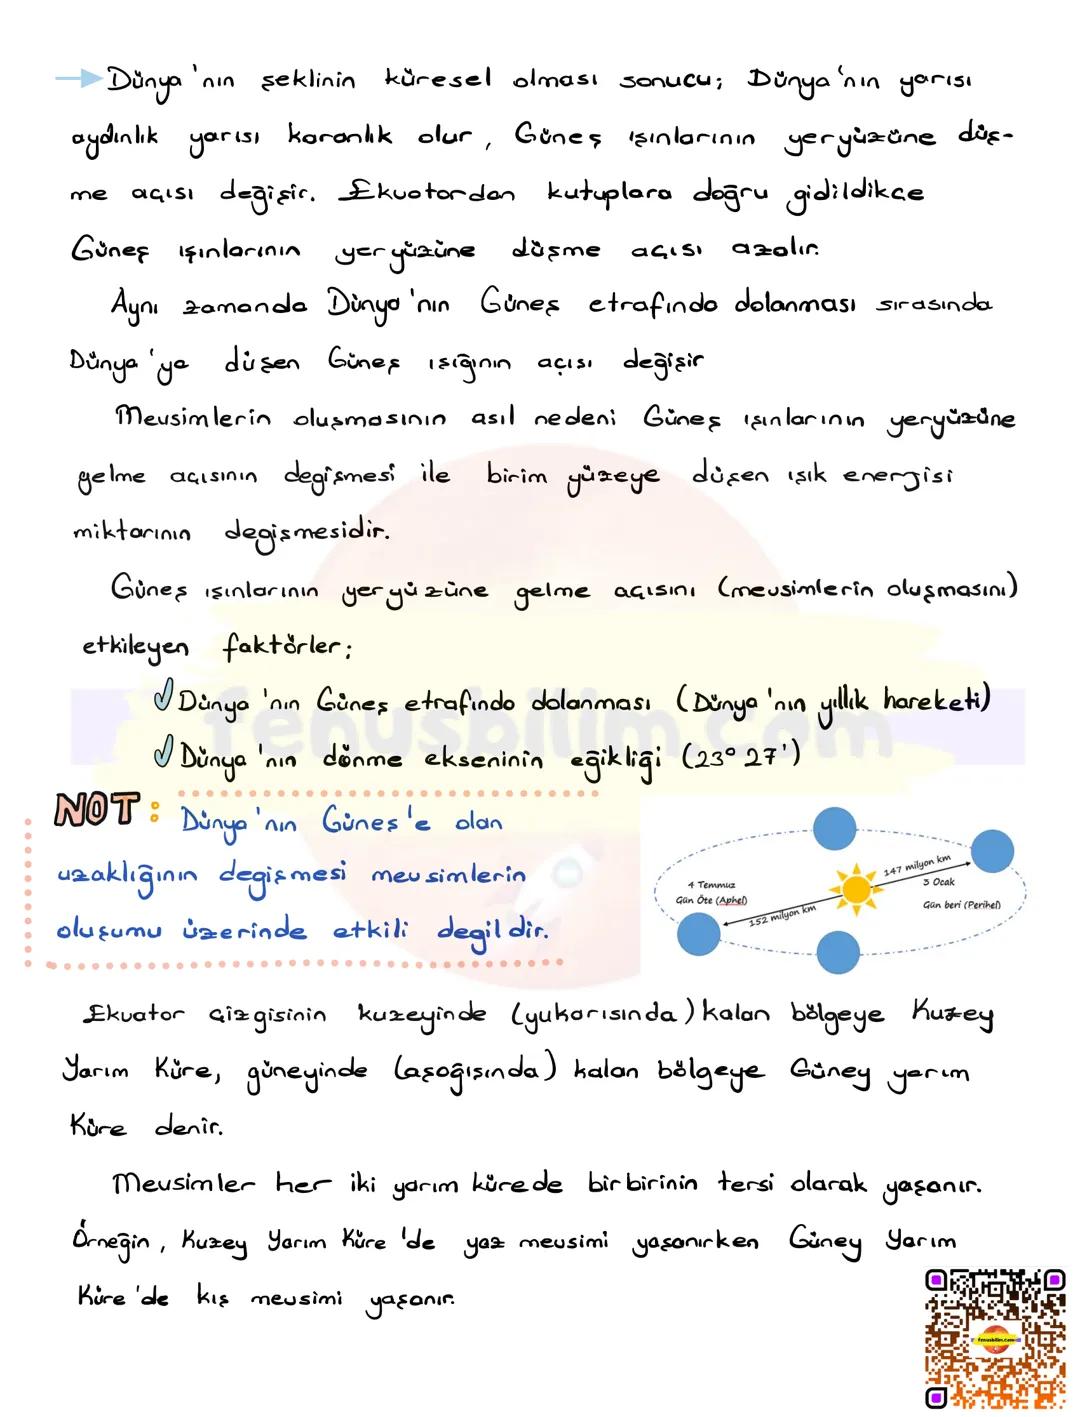 Dünya'nın şeklinin küresel olması sonucu; Dünya'nın yarısı
aydınlık yarısı karanlık olur, Güneş ışınlarının yeryüzüne düş-
me açısı değişir. Ekvatordan kutuplara doğru gidildikçe
Güneş ışınlarının yeryüzüne düşme açısı azalır.
Aynı zamanda Dünya'nın Güneş etrafında dolanması sırasında
Dünya'ya düşen Güneş ışığının açısı değişir
Mevsimlerin oluşmasının asıl nedeni Güneş ışınlarının yeryüzüne
gelme açısının degişmesi ile birim yüzeye düşen ışık enerjisi
miktarının degişmesidir.
Güneş ışınlarının yeryüzüne gelme açısını (mevsimlerin oluşmasını)
etkileyen faktörler;
Dünya'nın Güneş etrafında dolanması (Dünya'nın yıllık hareketi)
Dünya'nın dönme ekseninin eğikliği (23° 27')
fenusbilim.com
NOT: Dünya'nın Güneş'e olan
uzaklığının degişmesi mevsimlerin
oluşumu üzerinde etkili degildir.
147 milyon km
3 Ocak
Gün beri (Perihel)
4 Temmuz
Gün Öte (Aphel)
152 milyon km
Ekvator çizgisinin kuzeyinde (yukarısında) kalan bölgeye Kuzey
Yarım Küre, güneyinde (aşağışında) kalan bölgeye Güney yarım
Küre denir.
Mevsimler her iki yarım kürede birbirinin tersi olarak yaşanır.
Örneğin, Kuzey Yarım Küre'de yaz mevsimi yaşanırken Güney Yarım
Küre'de kış mevsimi yaşanır.
fenusbilim.com